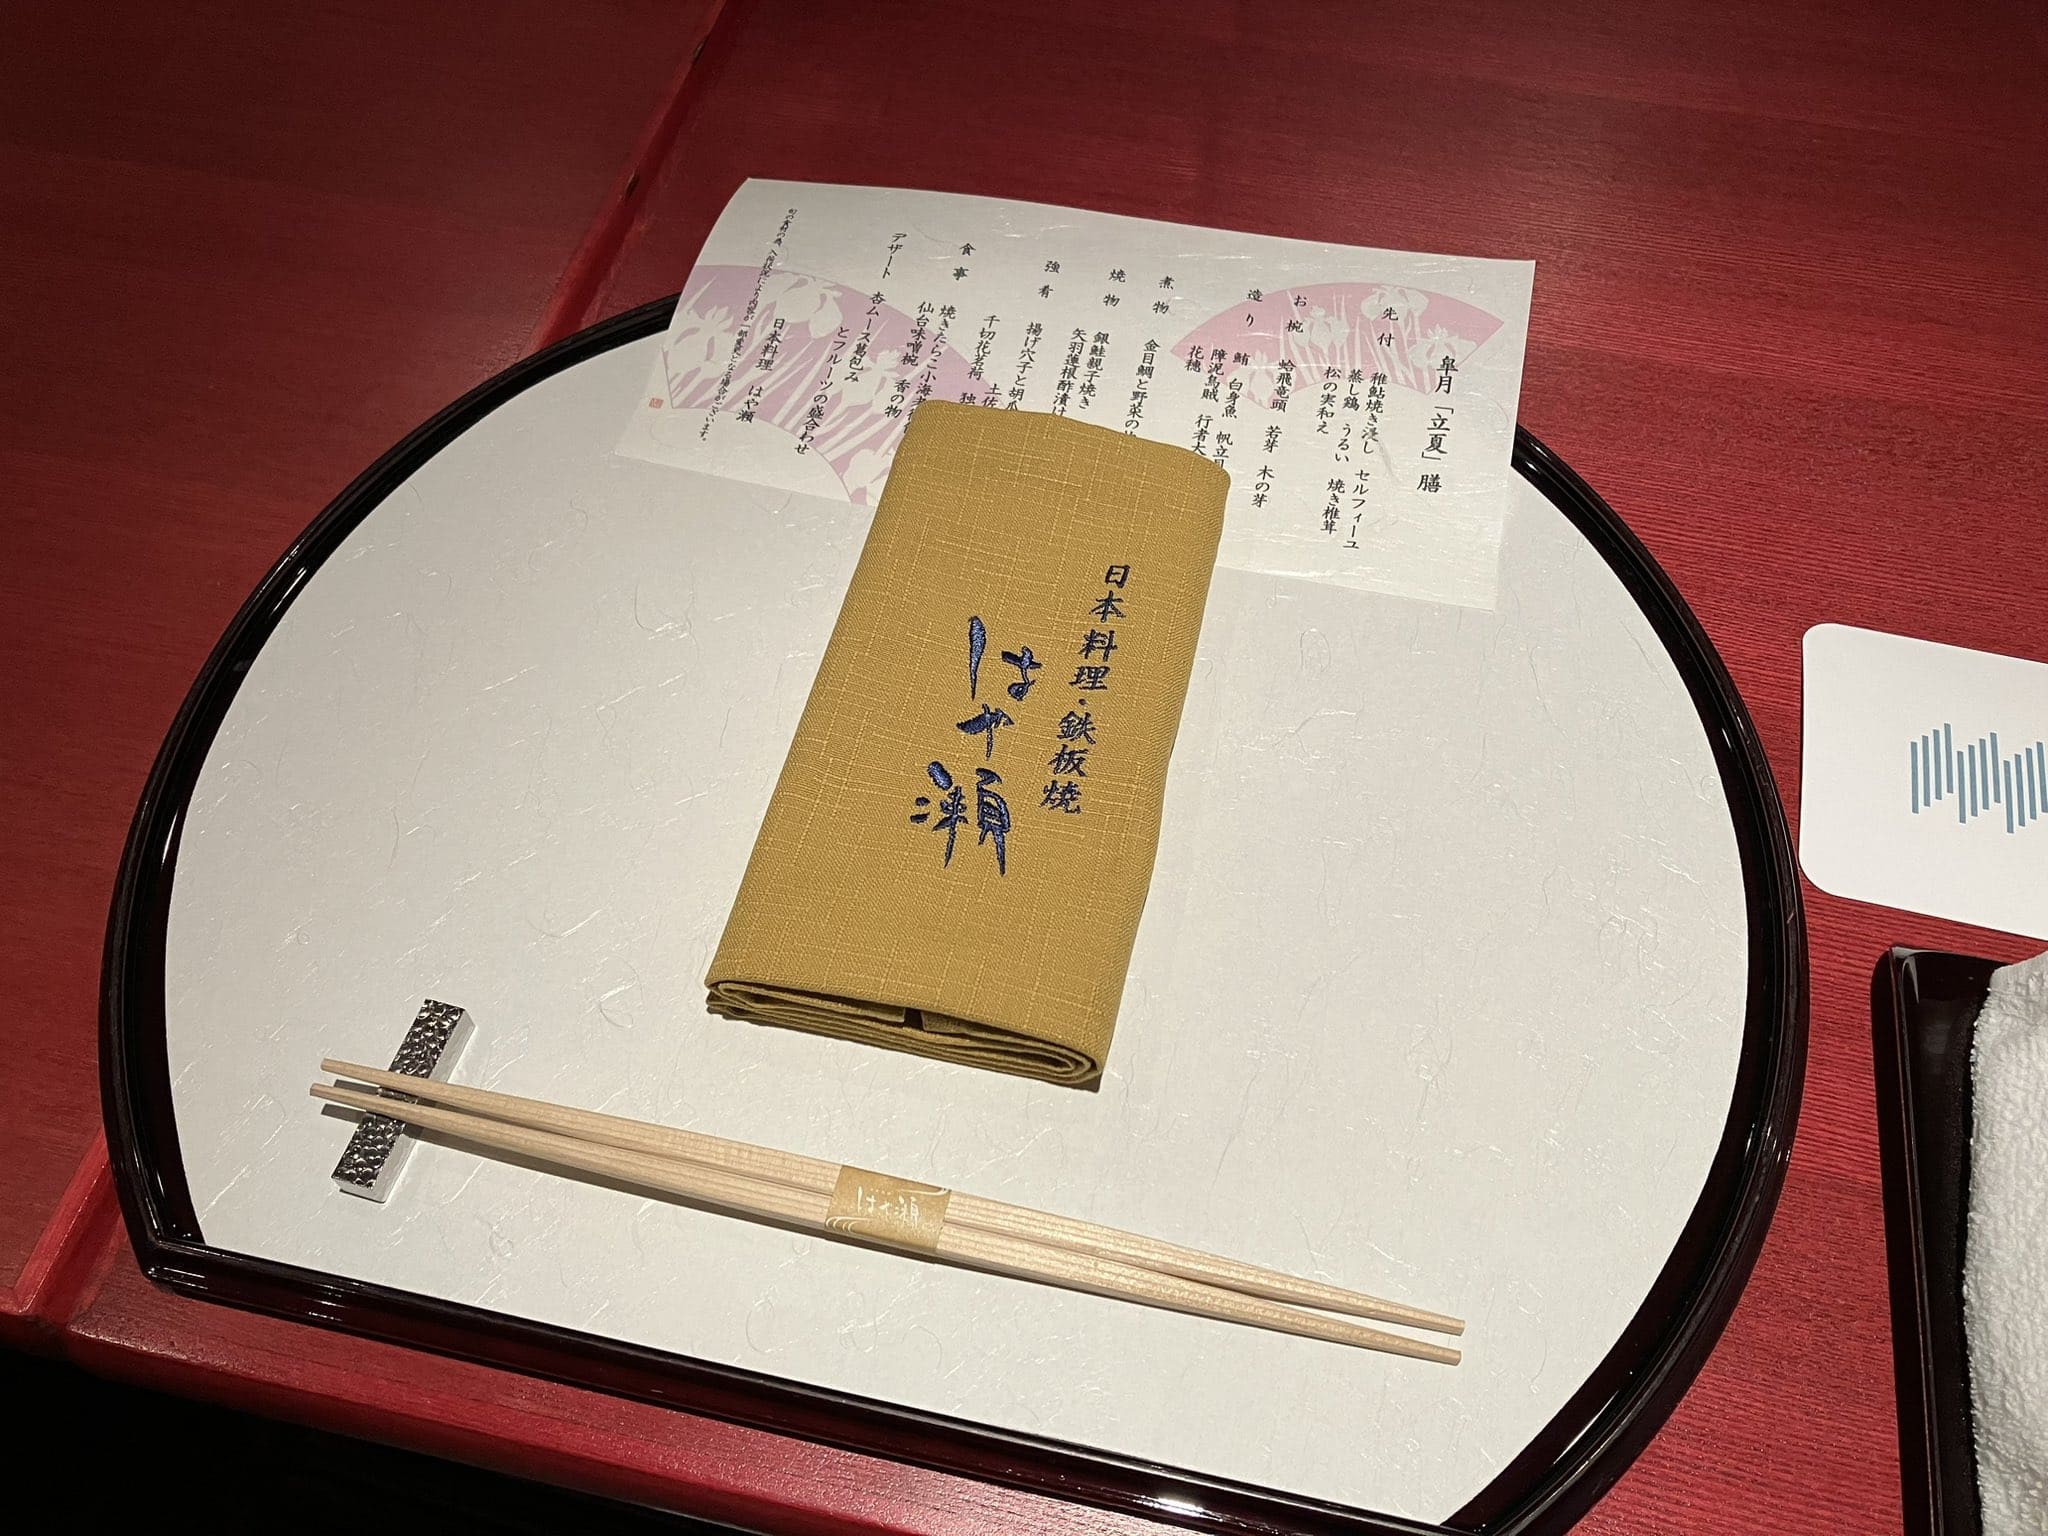 皐月「立夏」膳
先付
稚鮎焼き浸し セルフィーユ
蒸し鶏 うるい 焼き椎茸
松の実和え
お椀
蛤飛竜頭 若芽 木の芽
造り
鮪 白身魚 帆立
障泥烏賊 行者
花穂
煮物
金目鯛と野菜の
焼物
銀鮭親子焼き
矢羽蓮根酢漬け
強肴
揚げ穴子と胡瓜
千切花茗荷 土佐
食事
焼きたらこ小海老
仙台味噌椀 香の物
デザート
杏ムース葛包み
とフルーツの盛合わせ
日本料理 はや瀬
旬の食材の為、入荷状況により内容が一部変更となる場合がございます。
日本料理・鉄板焼
はや瀬
はや瀬